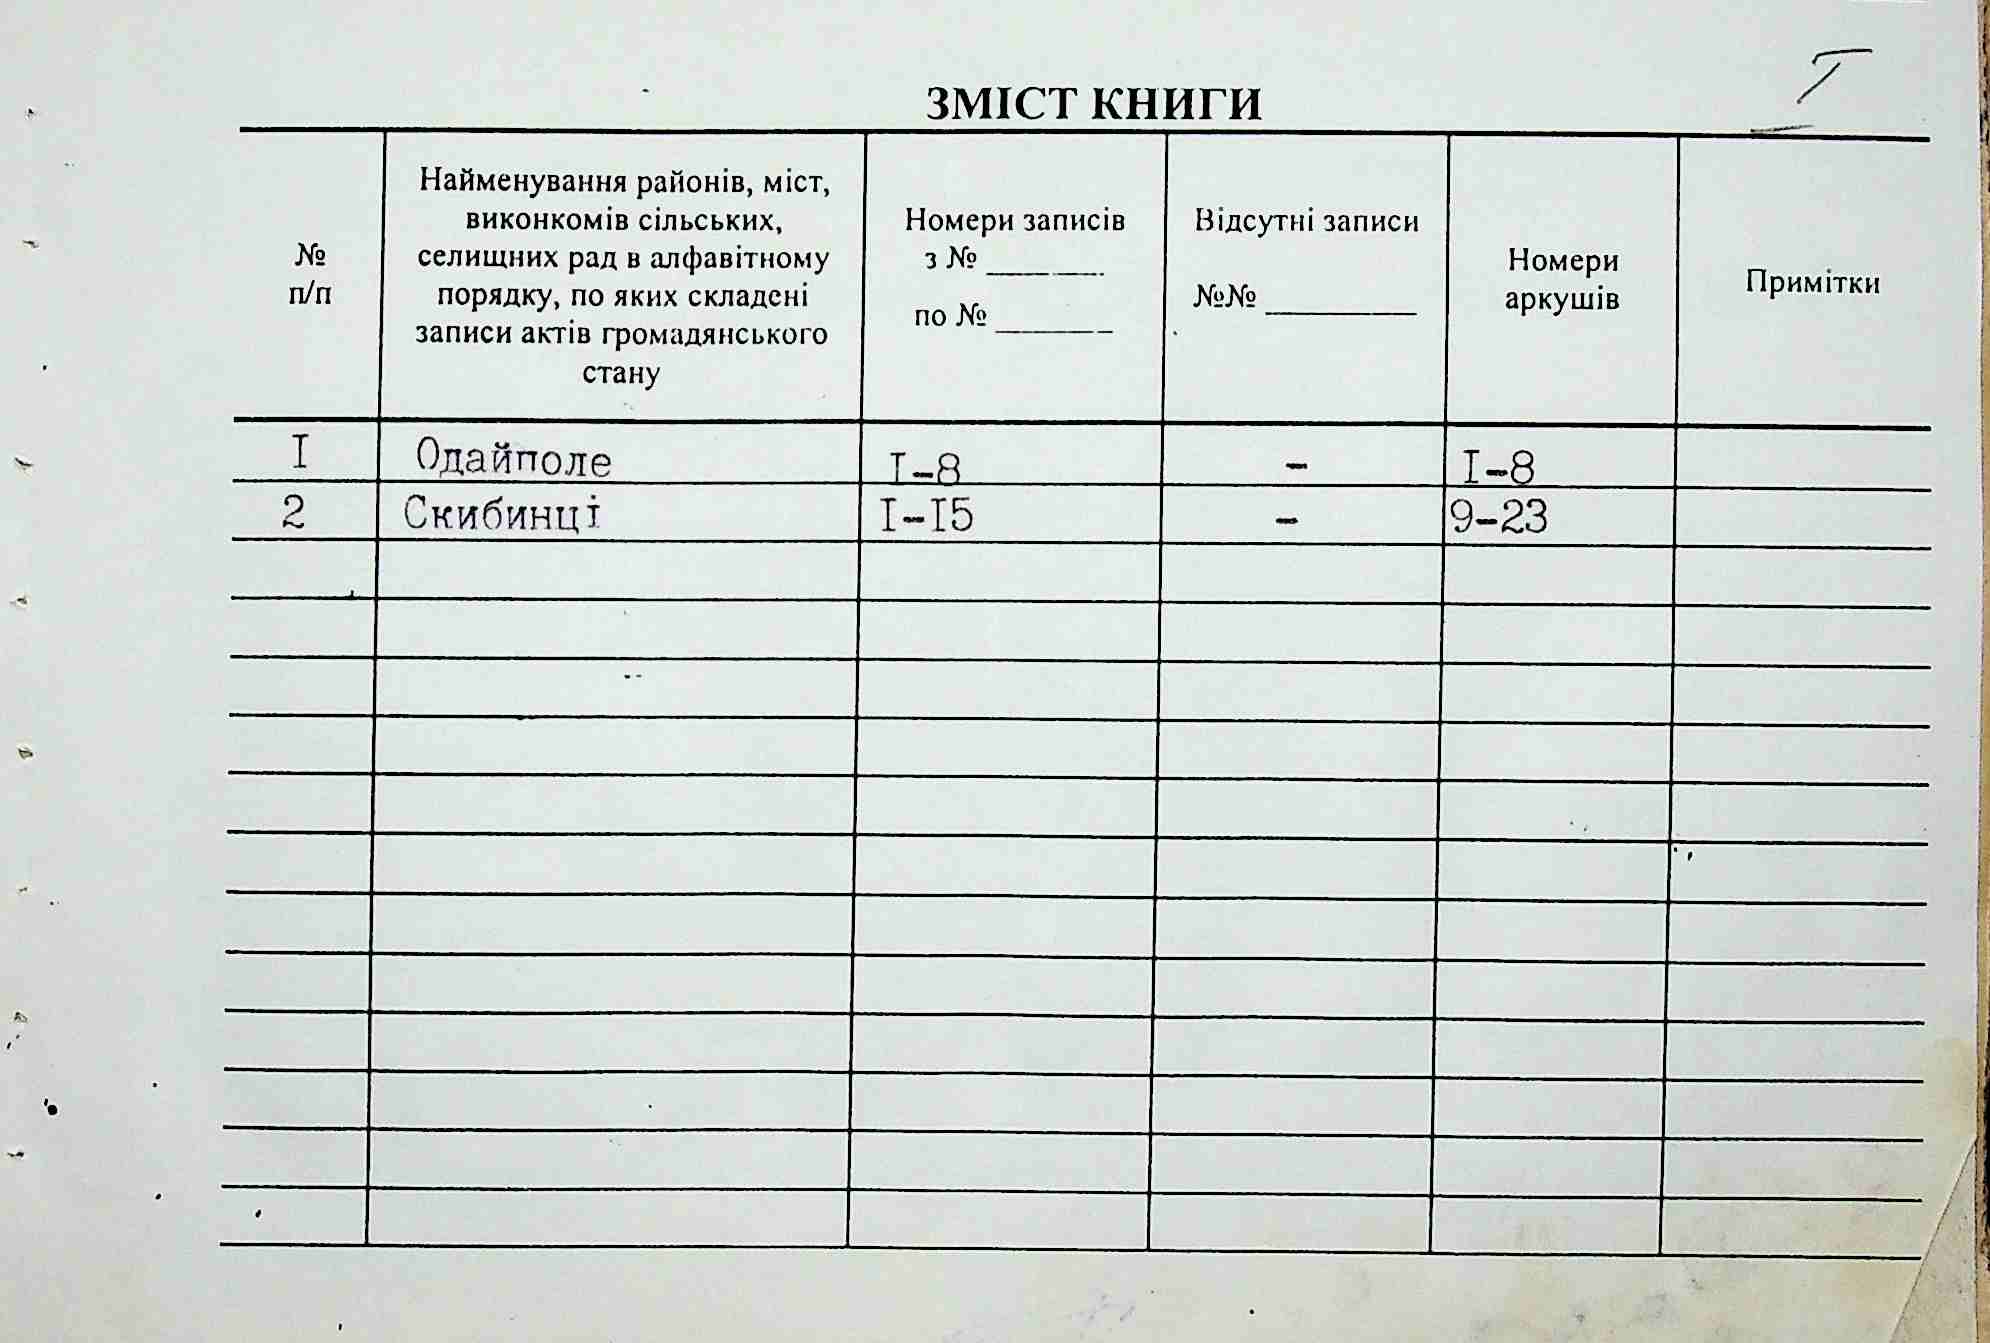 I
ЗМІСТ КНИГИ
№
п/п
Найменування районів, міст,
виконкомів сільських,
селищних рад в алфавітному
порядку, по яких складені
записи актів громадянського
стану
Номери записів
з № ________
по № ________
Відсутні записи
№№ __________
Номери
аркушів
Примітки
I Одайполе I-8 - I-8
2 Скибинці I-I5 - 9-23